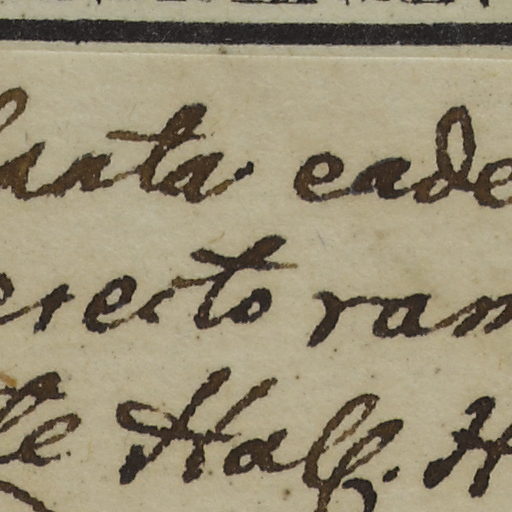 lanta eade
erecto ram
le Hall. H